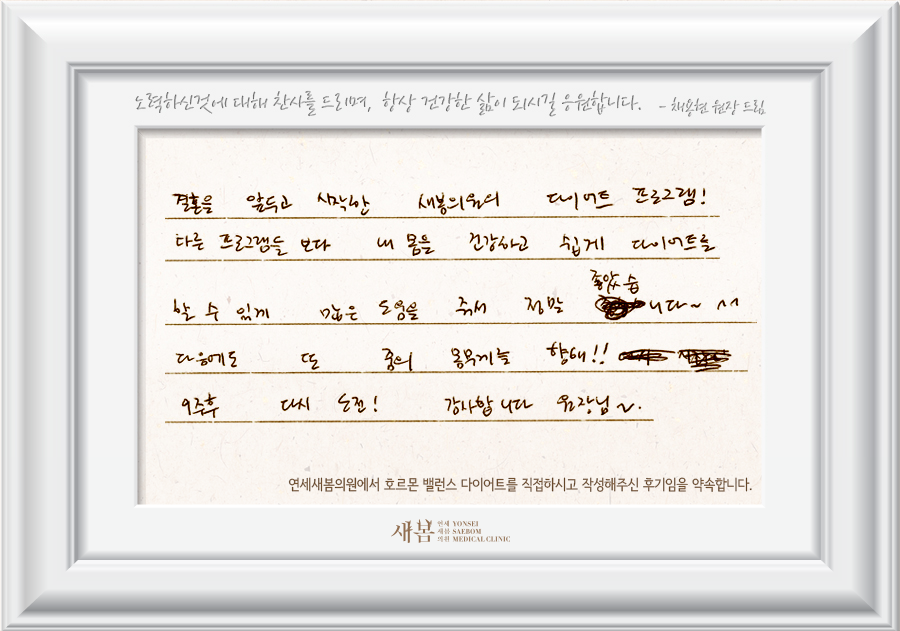 노력하신것에 대해 찬사를 드리며, 항상 건강한 삶이 되시길 응원합니다. - 채용현 원장 드림
결혼을 앞두고 시작한 새봄의원의 다이어트 프로그램!
다른 프로그램들 보다 내 몸을 건강하고 쉽게 다이어트를
할 수 있게 많은 도움을 줘서 정말 좋았습니다~ ^^
다음에도 또 꿈의 몸무게를 향해!!
9주후 다시 도전! 감사합니다 원장님~.
연세새봄의원에서 호르몬 밸런스 다이어트를 직접하시고 작성해주신 후기임을 약속합니다.
새봄 연세 새봄 의원 YONSEI SAEBOM MEDICAL CLINIC